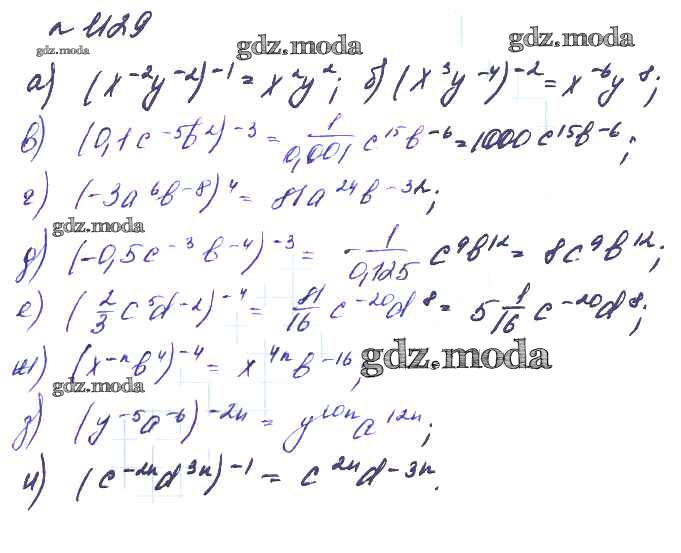 n 1129
gdz.moda gdz.moda gdz.moda
а) (x⁻²y⁻²)⁻¹ = x²y²; б) (x³y⁻⁴)⁻² = x⁻⁶y⁸;
в) (0,1c⁻⁵b²)⁻³ = 1/0,001 c¹⁵b⁻⁶ = 1000c¹⁵b⁻⁶;
г) (-3a⁶b⁻⁸)⁴ = 81a²⁴b⁻³²;
gdz.moda
д) (-0,5c⁻³b⁻⁴)⁻³ = -1/0,125 c⁹b¹² = 8c⁹b¹²;
е) (2/3 c⁵d⁻²)⁻⁴ = 81/16 c⁻²⁰d⁸ = 5 1/16 c⁻²⁰d⁸;
ж) (x⁻ⁿb⁴)⁻⁴ = x⁴ⁿb⁻¹⁶;
gdz.moda gdz.moda
з) (y⁻⁵a⁻⁶)⁻²ⁿ = y¹⁰ⁿa¹²ⁿ;
и) (c⁻²ⁿd³ⁿ)⁻¹ = c²ⁿd⁻³ⁿ.